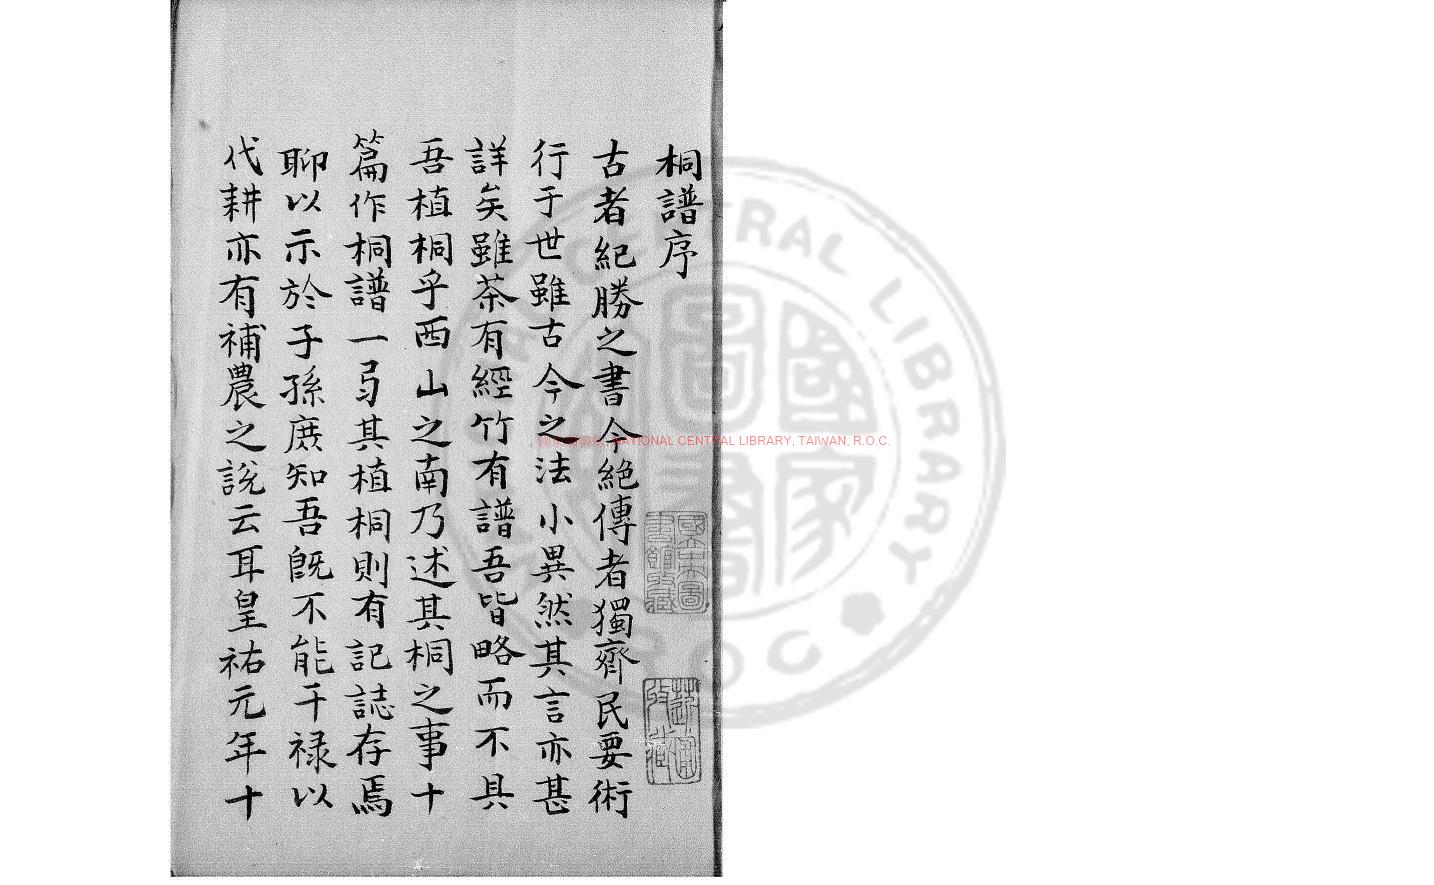 桐譜序
古者紀勝之書今絶傳者獨齊民要術
行于世雖古今之法小異然其言亦甚
詳矣雖茶有經竹有譜吾皆略而不具
吾植桐乎西山之南乃述其桐之事十
篇作桐譜一弓其植桐則有記誌存焉
聊以示於子孫庶知吾旣不能干禄以
代耕亦有補農之說云耳皇祐元年十
國立中央圖書館收藏
NATIONAL CENTRAL LIBRARY, TAIWAN, R.O.C.